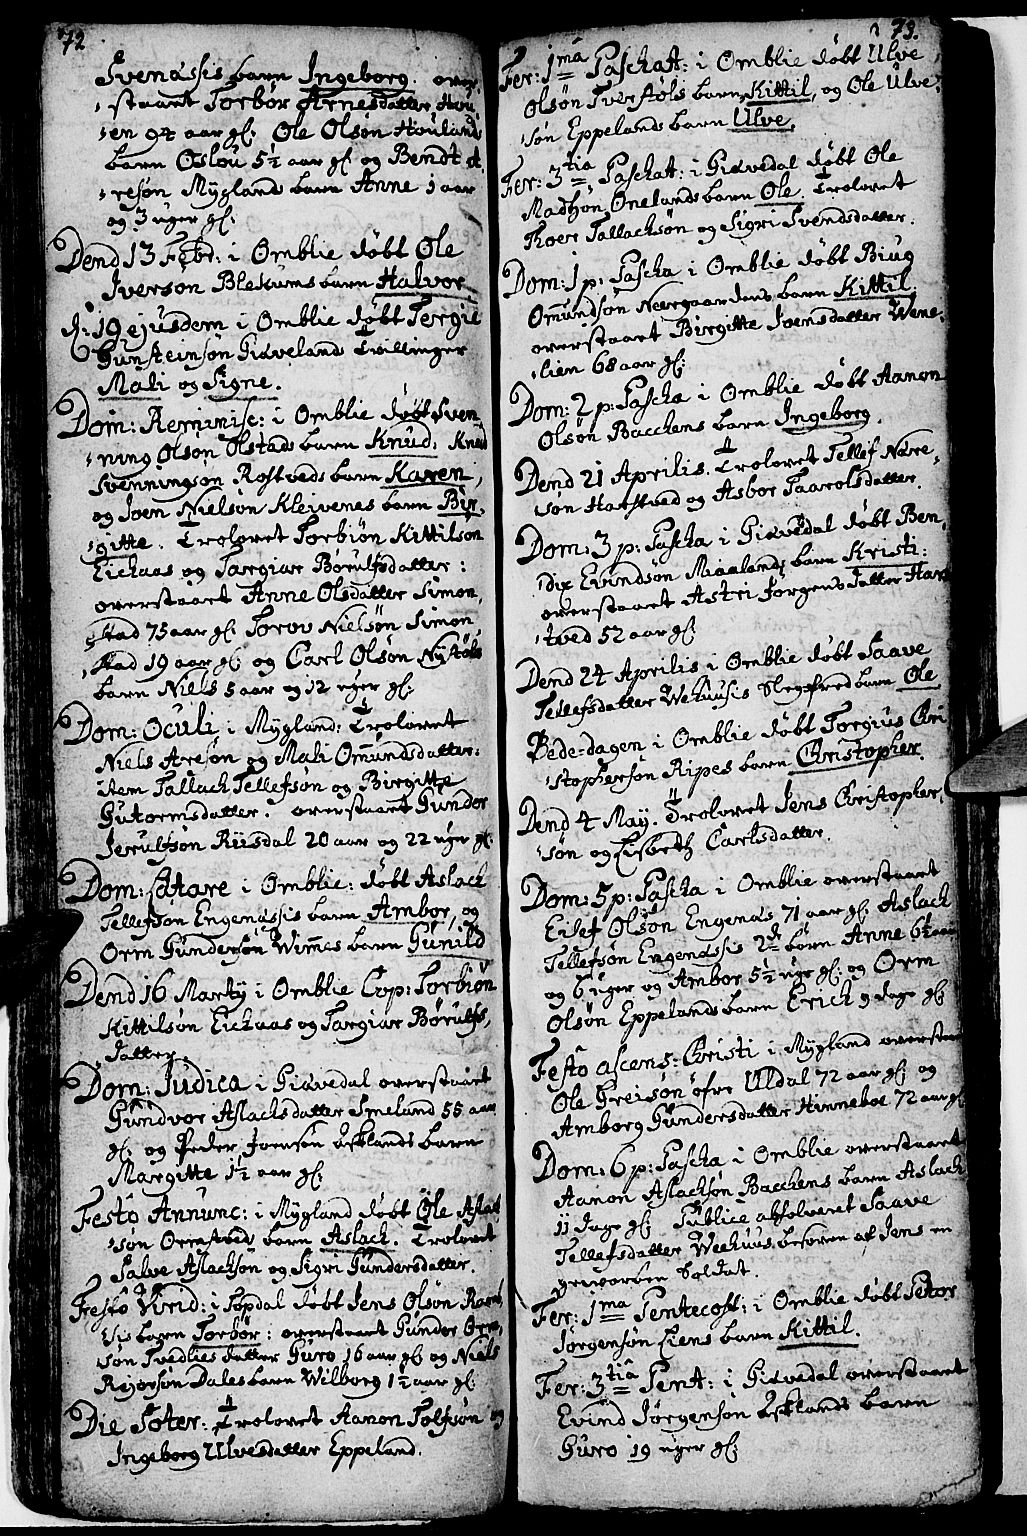 72
Svenassis barn Ingeborg. over,
,staaet Torbor Arnesdatter Hou,
,en 94 aar gl: Ole Olsøn Houlands
barn Oslou 5½ aar gl: og Bendt A,
,resøn Mÿglands barn Anne 1 aar
og 3 uger gl:
Dend 13 Febr: i Omblie døbt Ole
Iverson Blekums barn Halvor.
d: 19 ejusdem i Omblie døbt Tergie
Gunsteinsøn Giøvelands Tvillinger
Mali og Signe.
Dom: Reminisc: i Omblie døbt Sven,
,ning Olsøn Olstads barn Knud. Knud
Svenningsøn Rostveds barn Karen,
og Joen Nielsøn Kleivenes barn Bir,
,gitte. Trolovet Torbiøn Kittilsøn
Eichaas og Targiær Børulfsdatter:
overstaaet Anne Olsdatter Simon,
,stad 75 aar gl: Torov Nielsøn Simon,
,stad 19 aar gl: og Carl Olsøn Nÿstøls
barn Niels 5 aar og 12 uger gl:
Dom: Oculi i Mÿgland: Trolovet
Niels Aresøn og Mali Omundsdatter:
item Tallach Tellefsøn og Birgitte
Gutormsdatter. overstaaet Gunder
Jerulfsøn Riisdal 20 aar og 22 uger gl:
Dom: Lætare i Omblie: døbt Aslach
Tellefsøn Engenæssis barn Ambor, og
Orm Gundersøn Vimes barn Gunild
Dend 16 Martÿ i Omblie Cop: Torbiøn
Kittilsøn Eichaas og Targiær Børulfs,
,datter.
Dom: Judica i Giøvedal overstaaet
Gundvor Aslachsdatter Smeland 55 aar
gl: og Peder Joensøn Asklands barn
Margitte 1½ aar gl:
Festo Annunc: i Mÿgland døbt Ole Aslach
,søn Ormstveds barn Aslach. Trolovet
Salve Aslachsøn og Sigri Gundersdatter.
Festo Virid: i Topdal døbt Jens Olsøn Ramse
,sis barn Torbor: overstaaet Gunder Orm,
søn Tvedlies datter Guro 16 aar gl: og Niels
Rejersøn Dales barn Wilborg 1½ aar gl:
Die Pater: Trolovet Aanon Tolfsøn og
Ingeborg Ulvesdatter Eppeland.
73.
Fer: 1ma Paschat: i Omblie døbt Ulve
Olsøn Tverstøls barn Kittil, og Ole Ulve,
søn Eppelands barn Ulve.
Fer: 3tia Paschat: i Giøvedal døbt Ole
Madtzon Onelands barn Ole. Trolovet
Thoer Tallachsøn og Sigri Svendsdatter.
Dom: 1 p: Pascha i Omblie døbt Biug
Omundsøn Neergaardens barn Kittil.
overstaaet Birgitte Joensdatter Wene,
,lien 68 aar gl:
Dom: 2 p: Pascha i Omblie døbt Aanon
Olsøn Bacchens barn Ingeborg.
Dend 21 Aprilis. Trolovet Tellef Nære,
søn Hatstved og Asbor Taarolsdatter.
Dom: 3 p: Pascha i Giøvedal døbt Ben,
,dix Evindsøn Maalands barn Kristi:
overstaaet Astri Jørgensdatter Hars,
,tved 52 aar gl:
Dend 24 Aprilis i Omblie døbt Saave
Tellefsdatter Wehuusis Slegfred barn Ole
Bededagen i Omblie døbt Torgius Chri
,stophersøn Ripes barn Christopher.
Dend 4 Maÿ. Trolovet Jens Christopher,
søn og Lisbeth Carlsdatter.
Dom: 5 p: Pascha i Omblie overstaaet
Eilef Olsøn Engenæs 71 aar gl: Aslach
Tellefsøn Engenæssis 2de børn Anne 6½ aar
og 6 uger og Ambor 5½ uge gl: og Orm
Olsøn Eppelands barn Erich 9 dage gl:
Festo ascens: Christi i Mÿgland overstaaet
Ole Greisøn øfre Uldal 72 aar gl: og
Amborg Gundersdatter Hinneboe 72 aar gl:
Dom: 6 p: Pascha i Omblie overstaaet
Aanon Aslachsøn Bacchens barn Aslach
11 dage gl: Publice absolveret Saave
Tellefsdatter Wehuus besoven af Jens en
geworben Soldat.
Fer: 1ma Pentecost: i Omblie døbt Peter
Jørgensøn Liens barn Kittil.
Fer: 3tia Pent: i Giøvedal overstaaet
Evind Jørgensøn Asklands barn
Guro 19 uger gl: